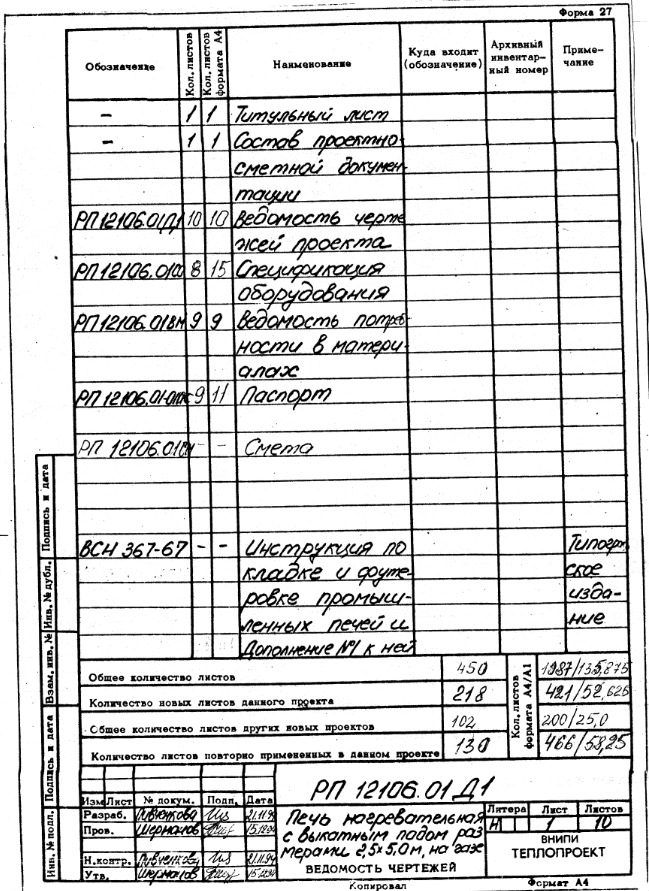 Форма 27
Обозначение Кол. листов Кол. листов формата А4 Наименование Куда входит (обозначение) Архивный инвентарный номер Примечание
– 1 1 Титульный лист
– 1 1 Состав проектно-
сметной докумен-
тации
РП12106.01Д1 10 10 Ведомость черте
жей проекта
РП12106.01 8 15 Спецификация
оборудования
РП12106.01ВМ 9 9 Ведомость потреб
ности в матери-
алах
РП 12106.01 9 11 Паспорт
РП 12106.01 – – Смета
ВСН 367-67 – – Инструкция по Типогр
кладке и футе- ское
ровке промыш- изда-
ленных печей и ние
Дополнение №1 к ней
Общее количество листов 450 1987/135,875
Количество новых листов данного проекта 218 421/52,625
Общее количество листов других новых проектов 102 200/25,0
Количество листов повторно примененных в данном проекте 130 466/58,25
Кол. листов формата А4/А1
Подпись и дата
Инв. № дубл.
Взам. инв. №
Подпись и дата
Инв. № подл.
РП 12106.01 Д1
Изм Лист № докум. Подп. Дата
Разраб. 21.11.94
Пров. Шерманов
Н.контр. 21.11.94
Утв. Шерманов
Печь нагревательная
с выкатным подом раз
мерами 2,5х5,0м, на газе
ВЕДОМОСТЬ ЧЕРТЕЖЕЙ
Литера Лист Листов
Н 1 10
ВНИПИ
ТЕПЛОПРОЕКТ
Копировал Формат А4